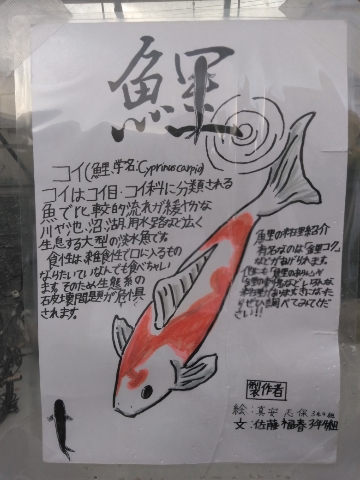 鯉
コイ(鯉、学名:Cyprinus carpio)
コイはコイ目・コイ科に分類される
魚で比較的流れが緩やかな
川や池、沼、湖、用水路など広く
生息する大型の淡水魚です。
食性は雑食性で口に入るもの
なりたいていなんでも食べちゃい
ます。そのため生態系の
破壊問題が危惧
されます。
鯉の料理紹介
有名なのは「鯉コク」
などがあげられます。
他にも
気になった
りぜひ調べてみてくだ
さい!!
製作者
絵:真安 志保 3年4組
文:佐藤 福春 3年4組